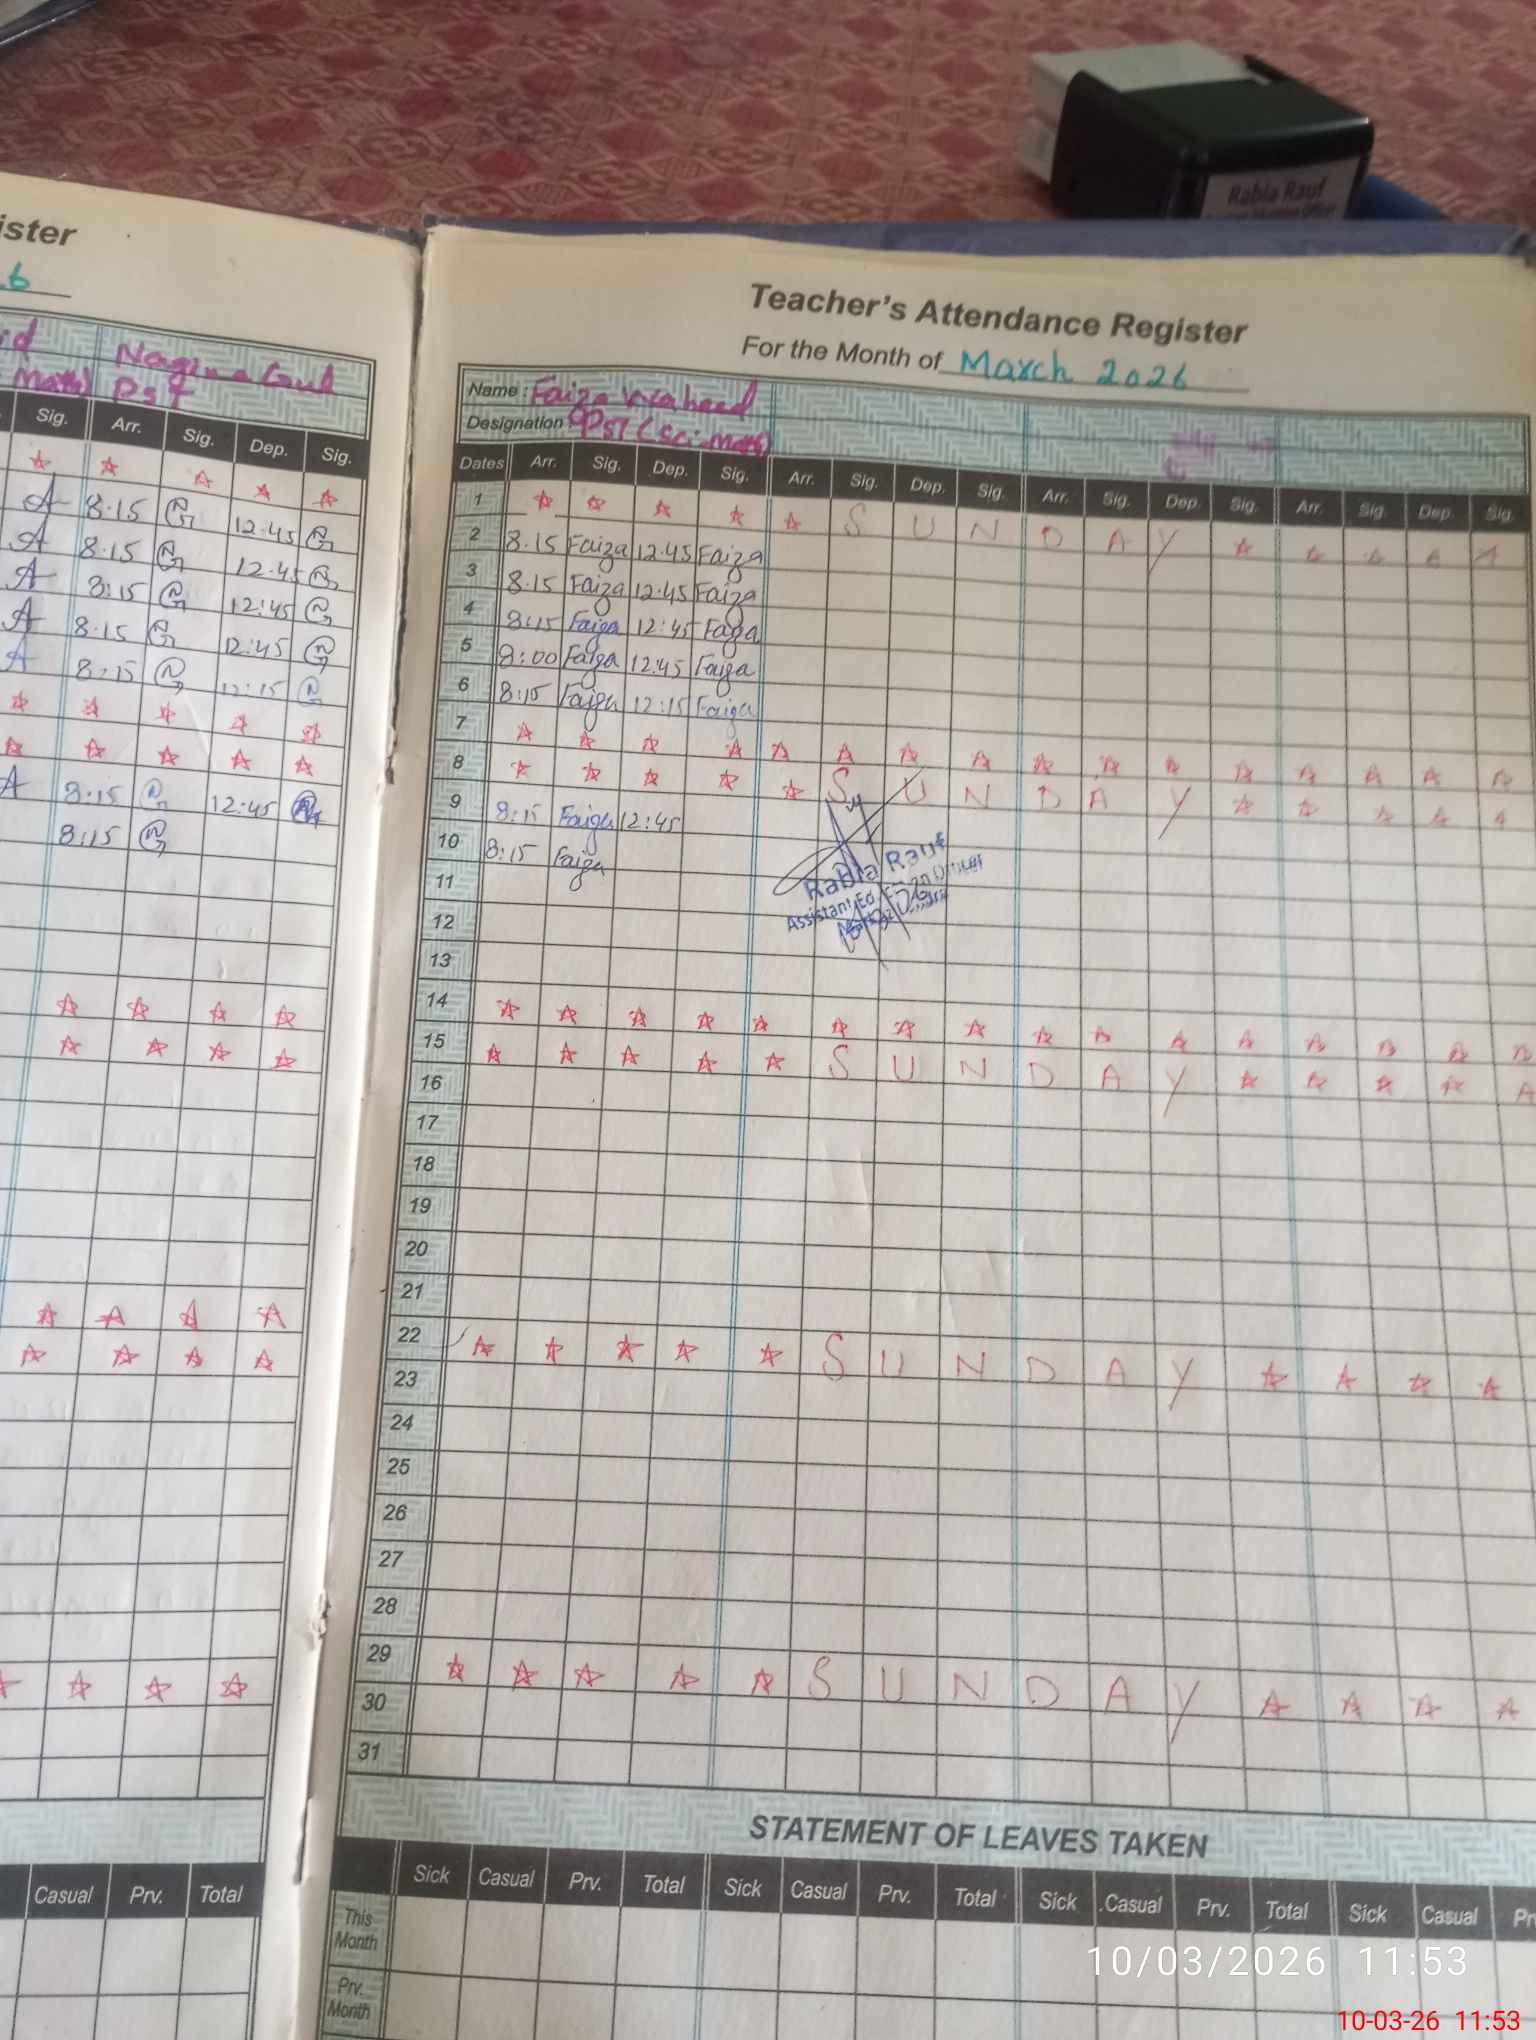 Rabia Rauf
ister
6
Teacher's Attendance Register
For the Month of March 2026
id Nagina Gul
Math) Pst
Name : Faiza Waheed
Designation PST (Sci-Math)
Sig. Arr. Sig. Dep. Sig.
Dates Arr. Sig. Dep. Sig. Arr. Sig. Dep. Sig. Arr. Sig. Dep. Sig. Arr. Sig. Dep. Sig.
8.15 12.45
8.15 12.45
8:15 12:45
8.15 12:45
8:15 12:15
8:15 12:45
8:15
1 S U N D A Y
2 8.15 Faiza 12.45 Faiza
3 8.15 Faiza 12.45 Faiza
4 8:15 Faiza 12:45 Faiza
5 8:00 Faiza 12:45 Faiza
6 8:15 Faiza 12:15 Faiza
7
8 S U N D A Y
9 8:15 Faiza 12:45
10 8:15 Faiza
Rabia Rauf
11
12
13
14
15 S U N D A Y
16
17
18
19
20
21
22 S U N D A Y
23
24
25
26
27
28
29 S U N D A Y
30
31
STATEMENT OF LEAVES TAKEN
Casual Prv. Total
Sick Casual Prv. Total Sick Casual Prv. Total Sick Casual Prv. Total Sick Casual Pr
This Month
Prv. Month
10/03/2026 11:53
10-03-26 11:53